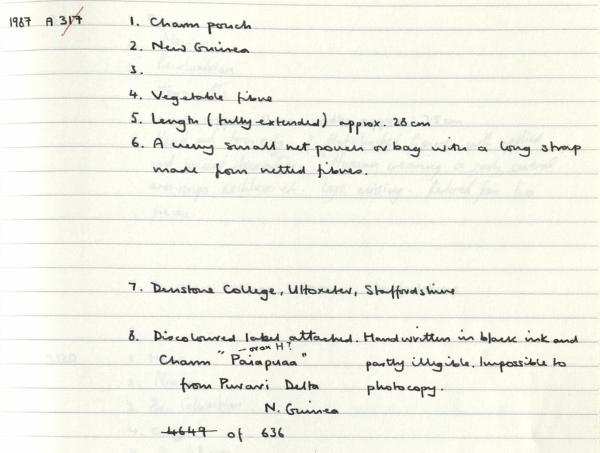 1987 A 317 1. Charm pouch
2. New Guinea
3.
4. Vegetable fibre
5. Length (fully extended) approx. 28cm
6. A very small net pouch or bag with a long strap
made from netted fibres.
7. Denstone College, Uttoxeter, Staffordshire
8. Discoloured label attached. Handwritten in black ink and
– or an H?
Charm "Paiapuaa" partly illegible. Impossible to
from Purari Delta photocopy.
N. Guinea
4649 of 636